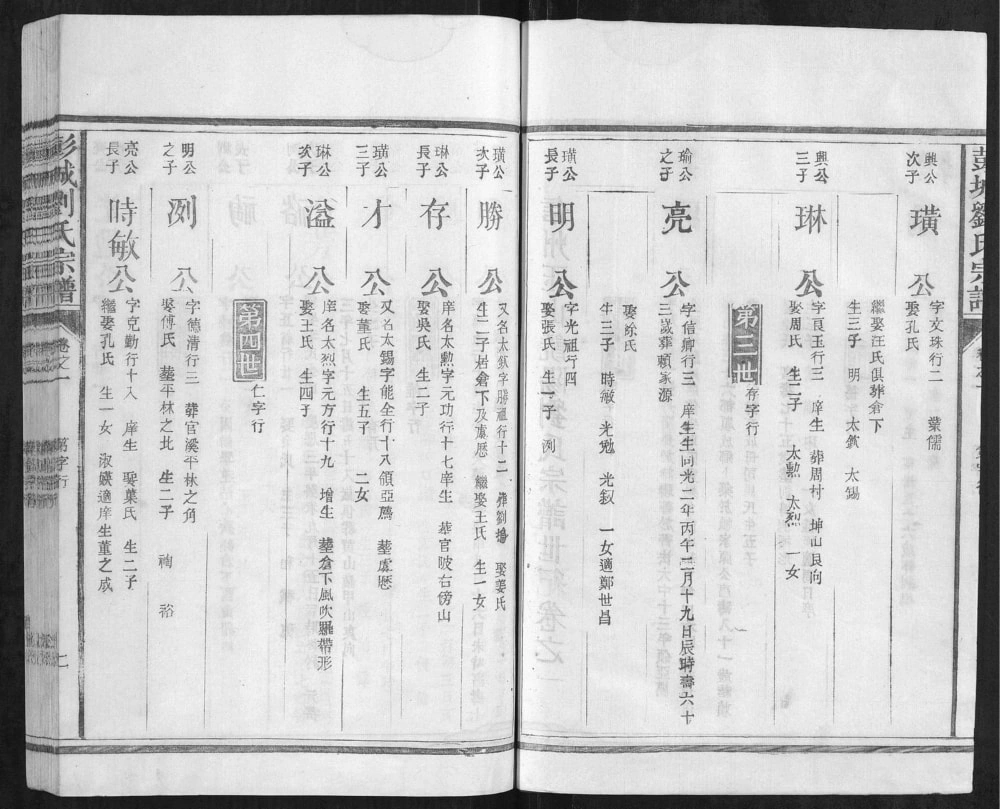 彭城劉氏宗譜
興公次子
璜公
字文珠行二 業儒
娶孔氏
繼娶汪氏俱葬倉下
生三子 明 太欽 太錫
興公三子
琳公
字良玉行三 庠生 葬周村 坤山艮向
娶周氏 生二子 太勲 太烈 一女
第三世
存字行
瑜公之子
亮公
字信卿行三 庠生生同光二年丙午二月十九日辰時壽六十
三歲葬賴家源
娶徐氏
生三子 時敏 光勉 光叙 一女適鄭世昌
璜公長子
明公
字光祖行四
娶張氏 生一子 洌
璜公次子
勝公
又名太欽字勝祖行十二 葬劉揚 娶姜氏
生二子居倉下及虞愿 繼娶王氏 生一女
琳公長子
存公
庠名太勲字元功行十七庠生 葬官陂右傍山
娶吳氏 生二子
璜公三子
才公
又名太錫字能全行十八領亞薦 葬虞愿
娶董氏 生五子 二女
琳公次子
溢公
庠名太烈字元方行十九 增生 葬倉下風吹羅帶形
娶王氏 生四子
第四世
仁字行
明公之子
洌公
字德清行三 葬官溪平林之角
娶傅氏 葬平林之北 生二子 祹 裕
亮公長子
時敏公
字克勤行十八 庠生 娶葉氏 生二子
繼娶孔氏 生一女 淑媖適庠生董之成
彭城劉氏宗譜
卷之一
萬字行
七